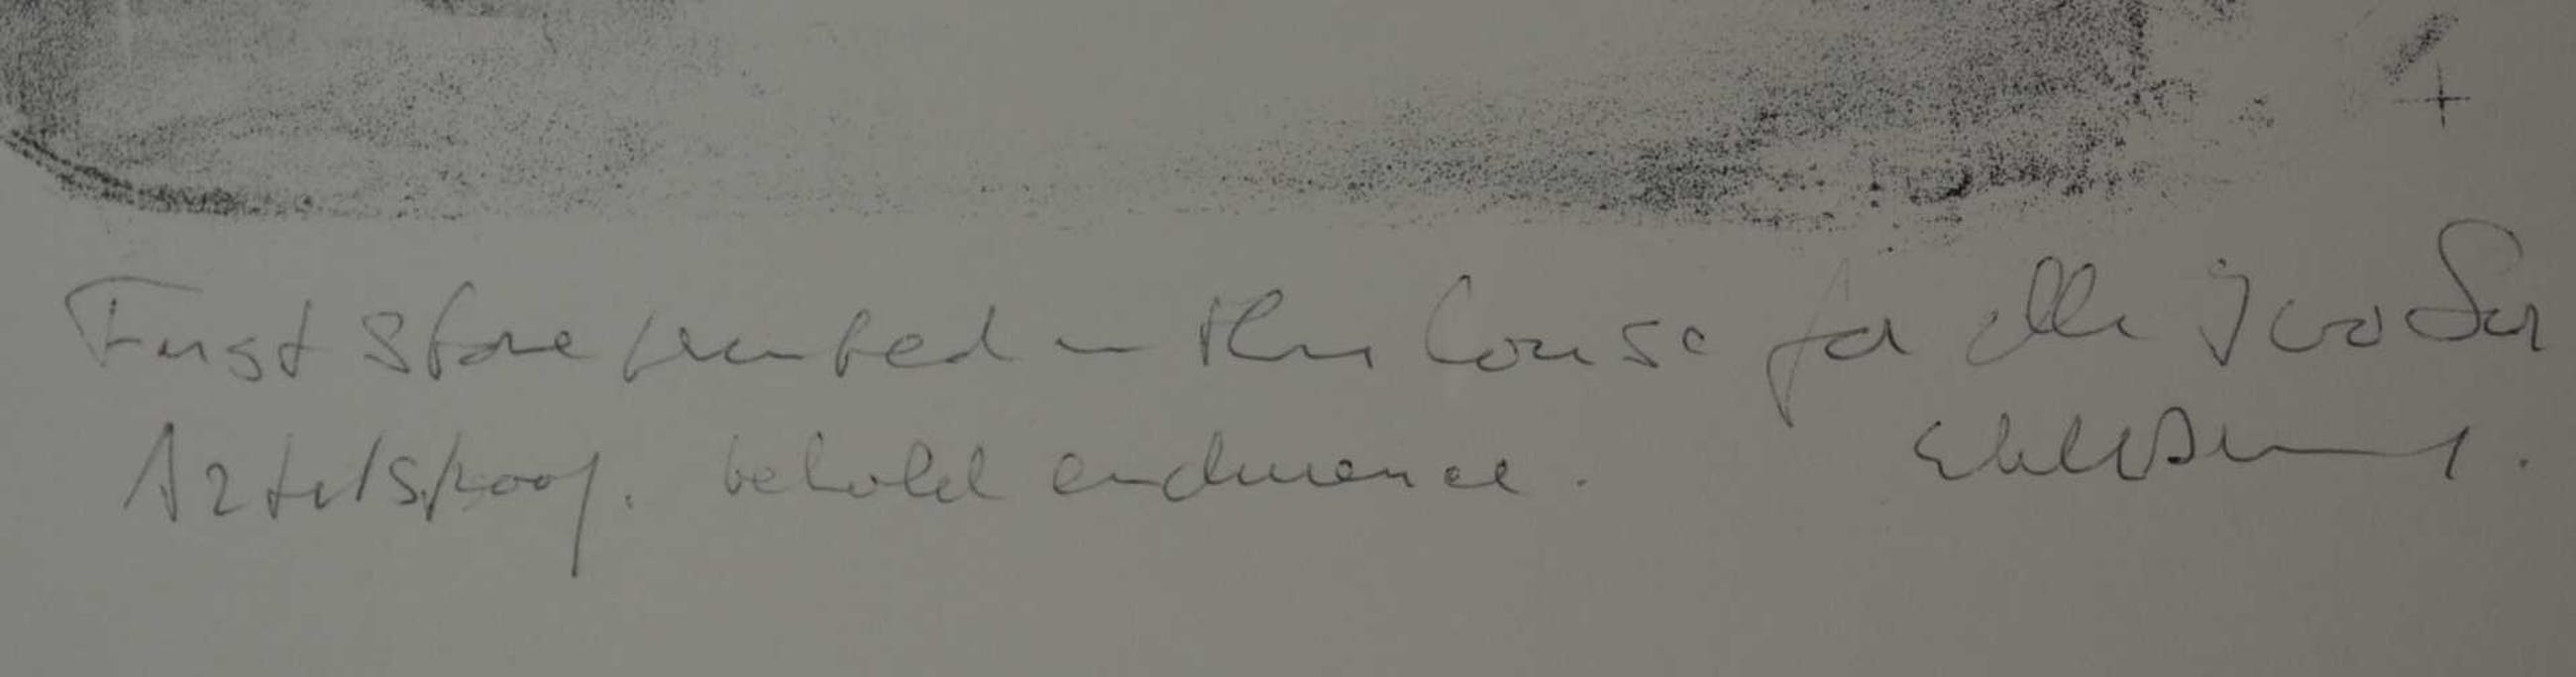 First stone printed in this house for all
Artistsproof. behold endurance.